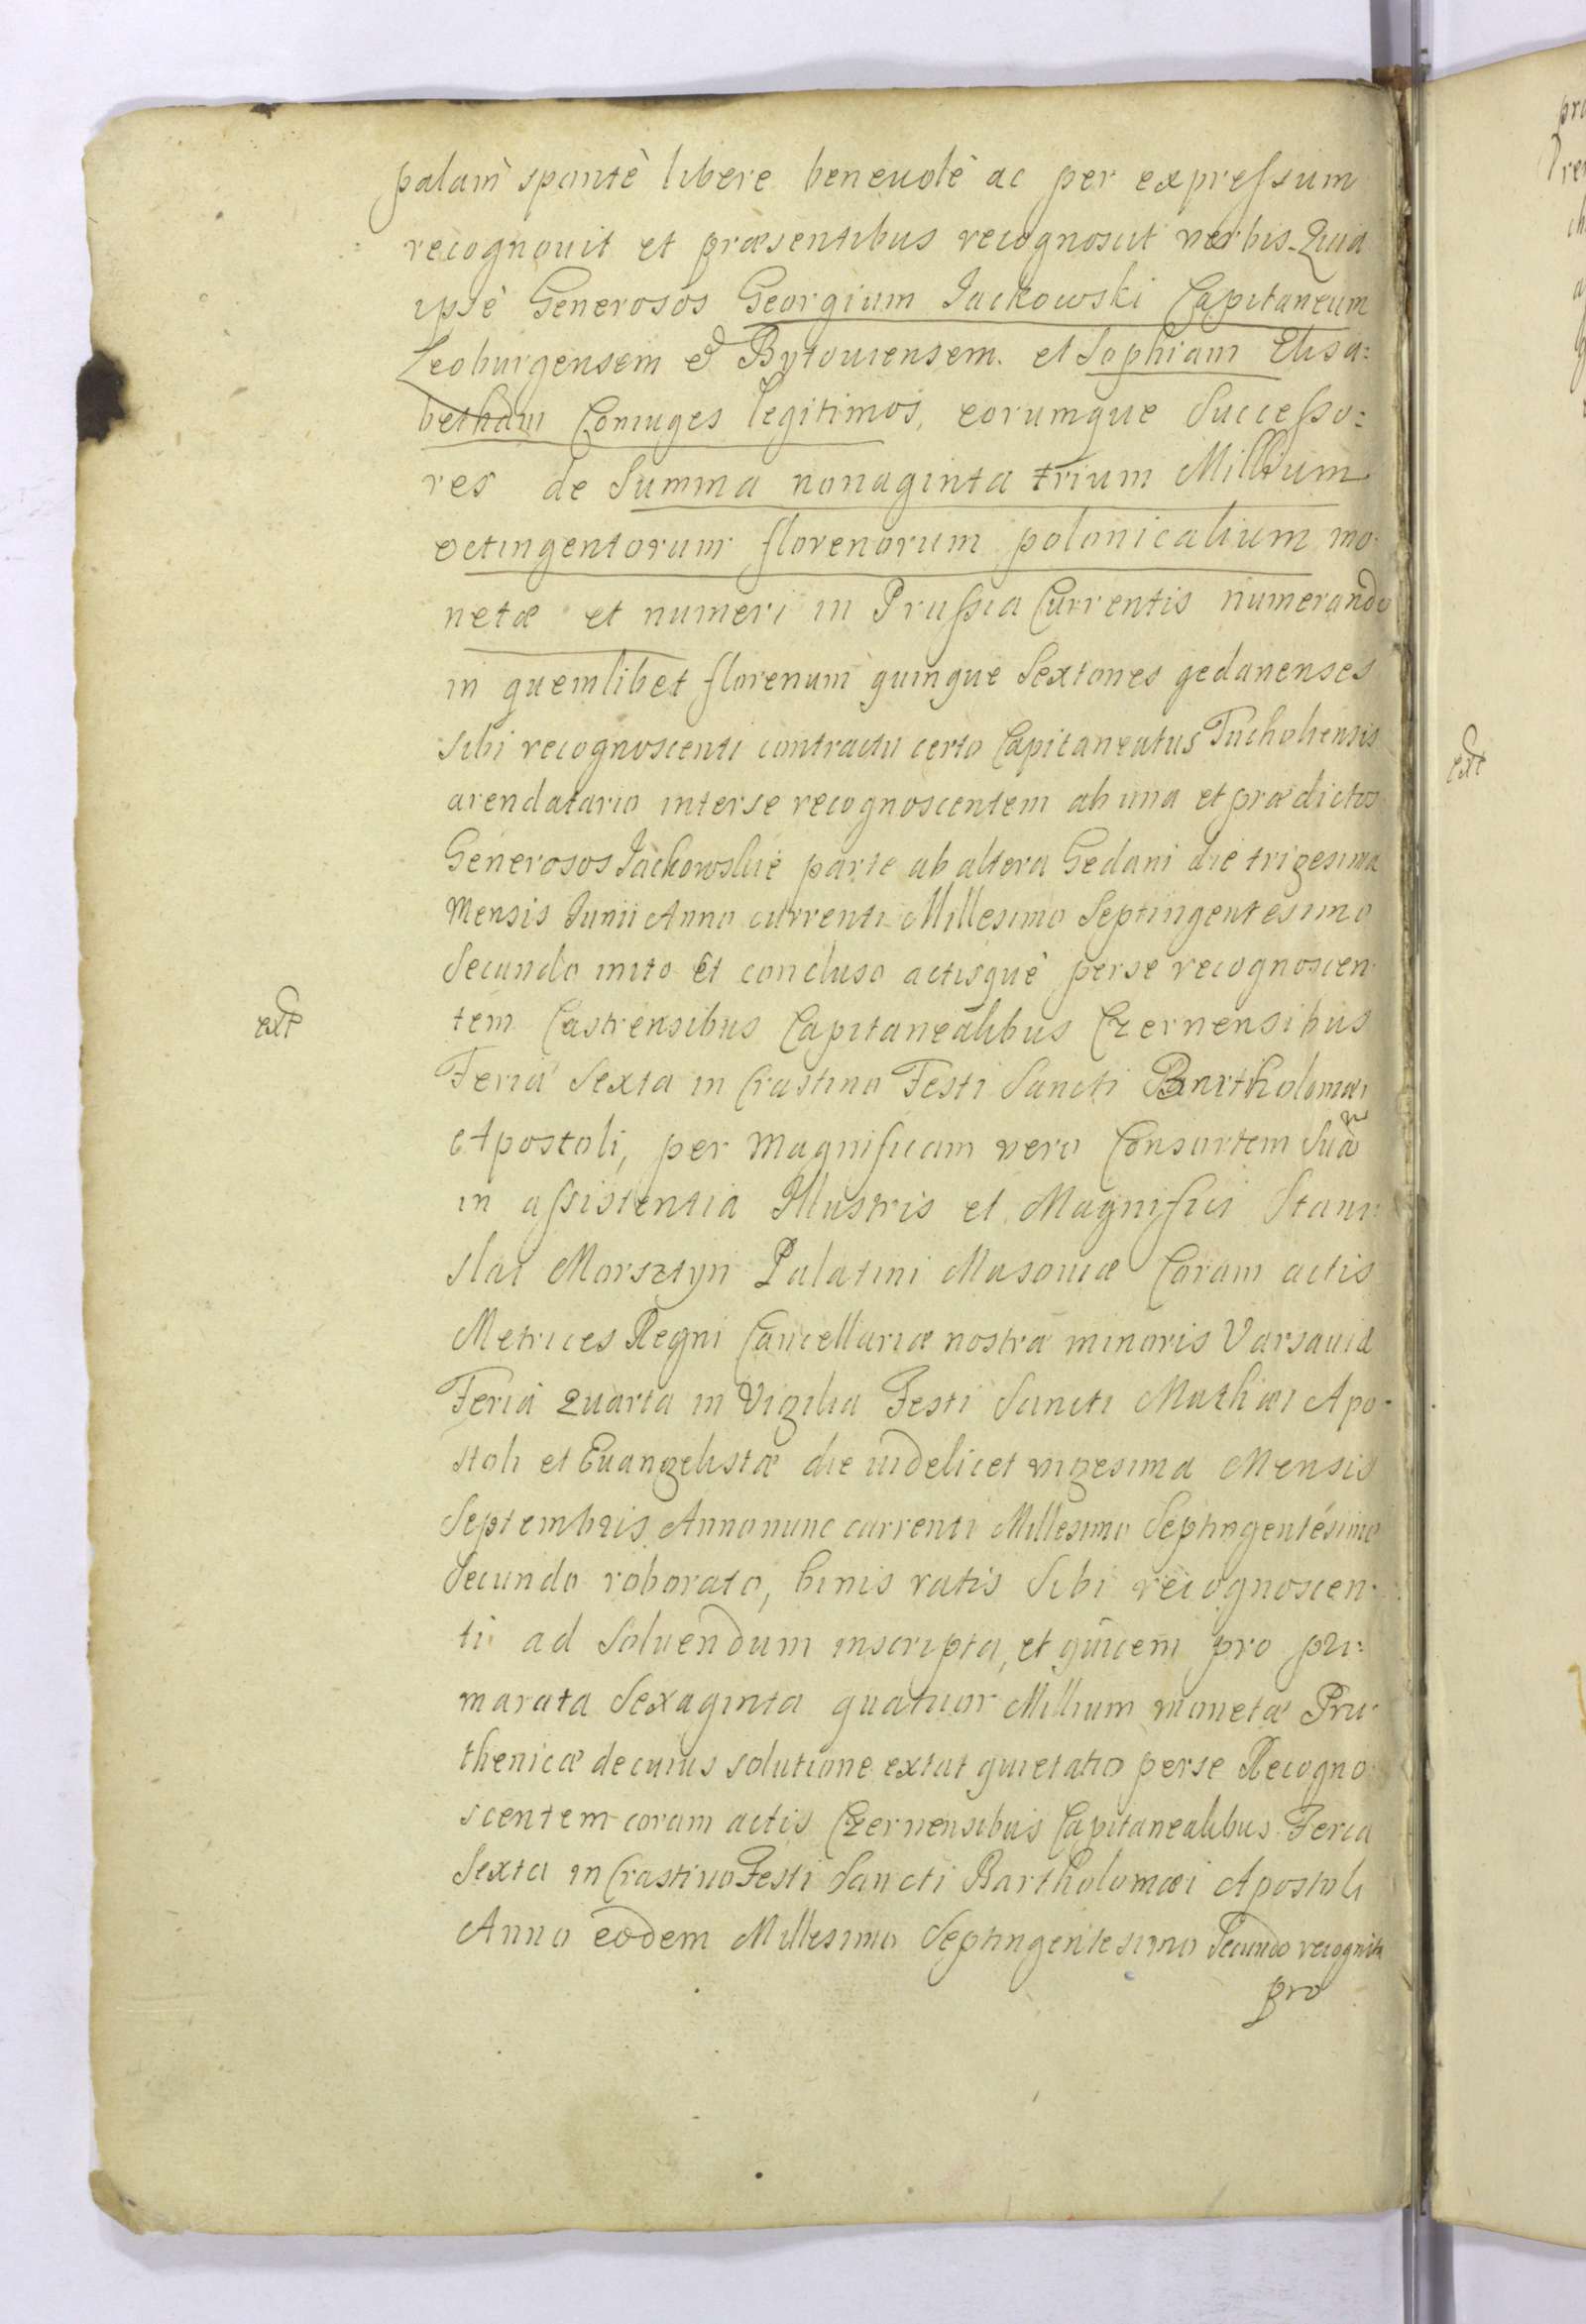 palam spontè libere beneuolè ac per expressum
recognouit et præsentibus recognoscit verbis. Quia
ipsè Generosos Georgium Jackowski Capitaneum
Leoburgensem & Bytouiensem. et Sophiam Elisa:
betham Coniuges legitimos, eorumque Successo:
res de Summa nonaginta trium Millium
octingentorum florenorum polonicalium mo:
netæ et numeri in Prussia Currentis numerando
in quemlibet florenum quinque Sextones gedanenses
sibi recognoscenti contractu certo Capitaneatus Tucholiensis
arendatario interse recognoscentem ab una et prædictos
Generosos Jackowskie parte ab altera Gedani die trigesima
Mensis Junii Anno currenti Millesimo Septingentesimo
Secundo inito et concluso actisquè perse recognoscen
tem Castrensibus Capitanealibus Czernensibus
ext
Feriá Sexta in Crastino Festi Sancti Bartholomæi
Apostoli, per Magnificam vero Consortem Suã
in assistentia Illustris et Magnifici Stani:
slai Morsztyn Palatini Masouiæ Coram actis
Metrices Regni Cancellariæ nostræ minoris Varsauiæ
Feriá Quarta in Vigilia Festi Sancti Mathæi Apo
stoli et Euangelistæ die uidelicet vigesima Mensis
Septembris Anno nunc currenti Millesimo Septingentésimo
Secundo roborato, binis ratis Sibi recognoscen
ti ad Soluendum inscripta, et quidem pro pri:
marata Sexaginta quatuor Millium monetæ Pru
thenicæ decuius solutione extat quietatio perse Recogno
scentem coram actis Czernensibus Capitanealibus Feria
Sexta in Crastino Festi Sancti Bartholomæi Apostoli
Anno eodem Millesimo Septingentesimo Secundo recognita
pro
ext